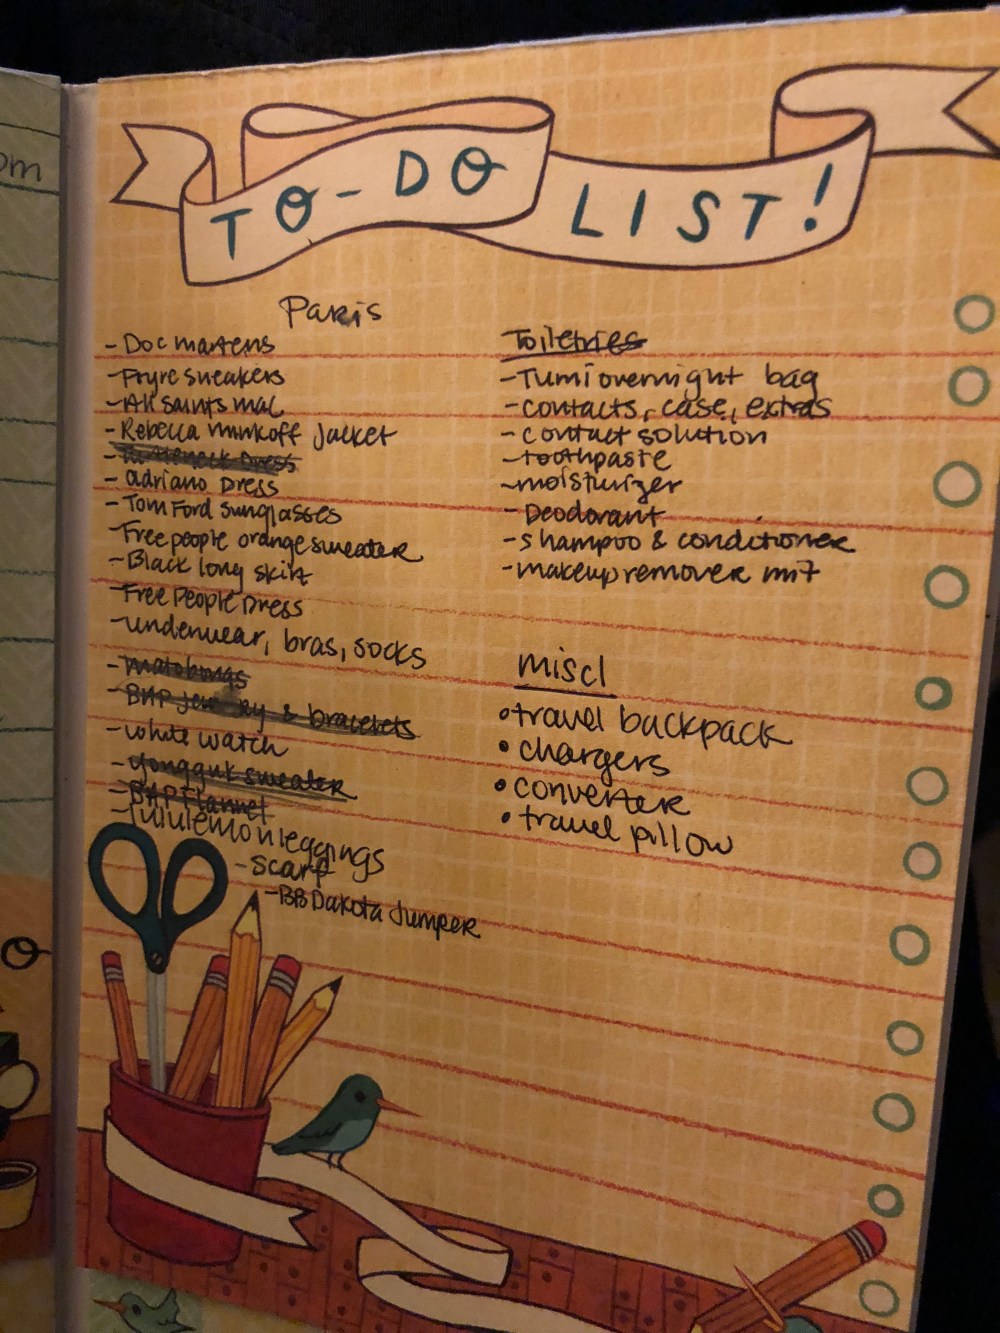 om
TO-DO LIST!
Paris
- Doc martens
- Frye sneakers
- All saints mac
- Rebecca minkoff Jacket
- Turtleneck Dress
- adriano Dress
- Tom Ford sunglasses
- Free people orange sweater
- Black long skirt
- Free People Dress
- underwear, bras, socks
-
- BHP jewelry & bracelets
- white watch
- sweater
- BHP Flannel
- lululemon leggings
- scarf
- BB Dakota Jumper
Toiletries
- Tumi overnight bag
- contacts, case, extras
- contact solution
- toothpaste
- moisturizer
- Deodorant
- shampoo & conditioner
- makeup remover mit
miscl
• travel backpack
• chargers
• converter
• travel pillow